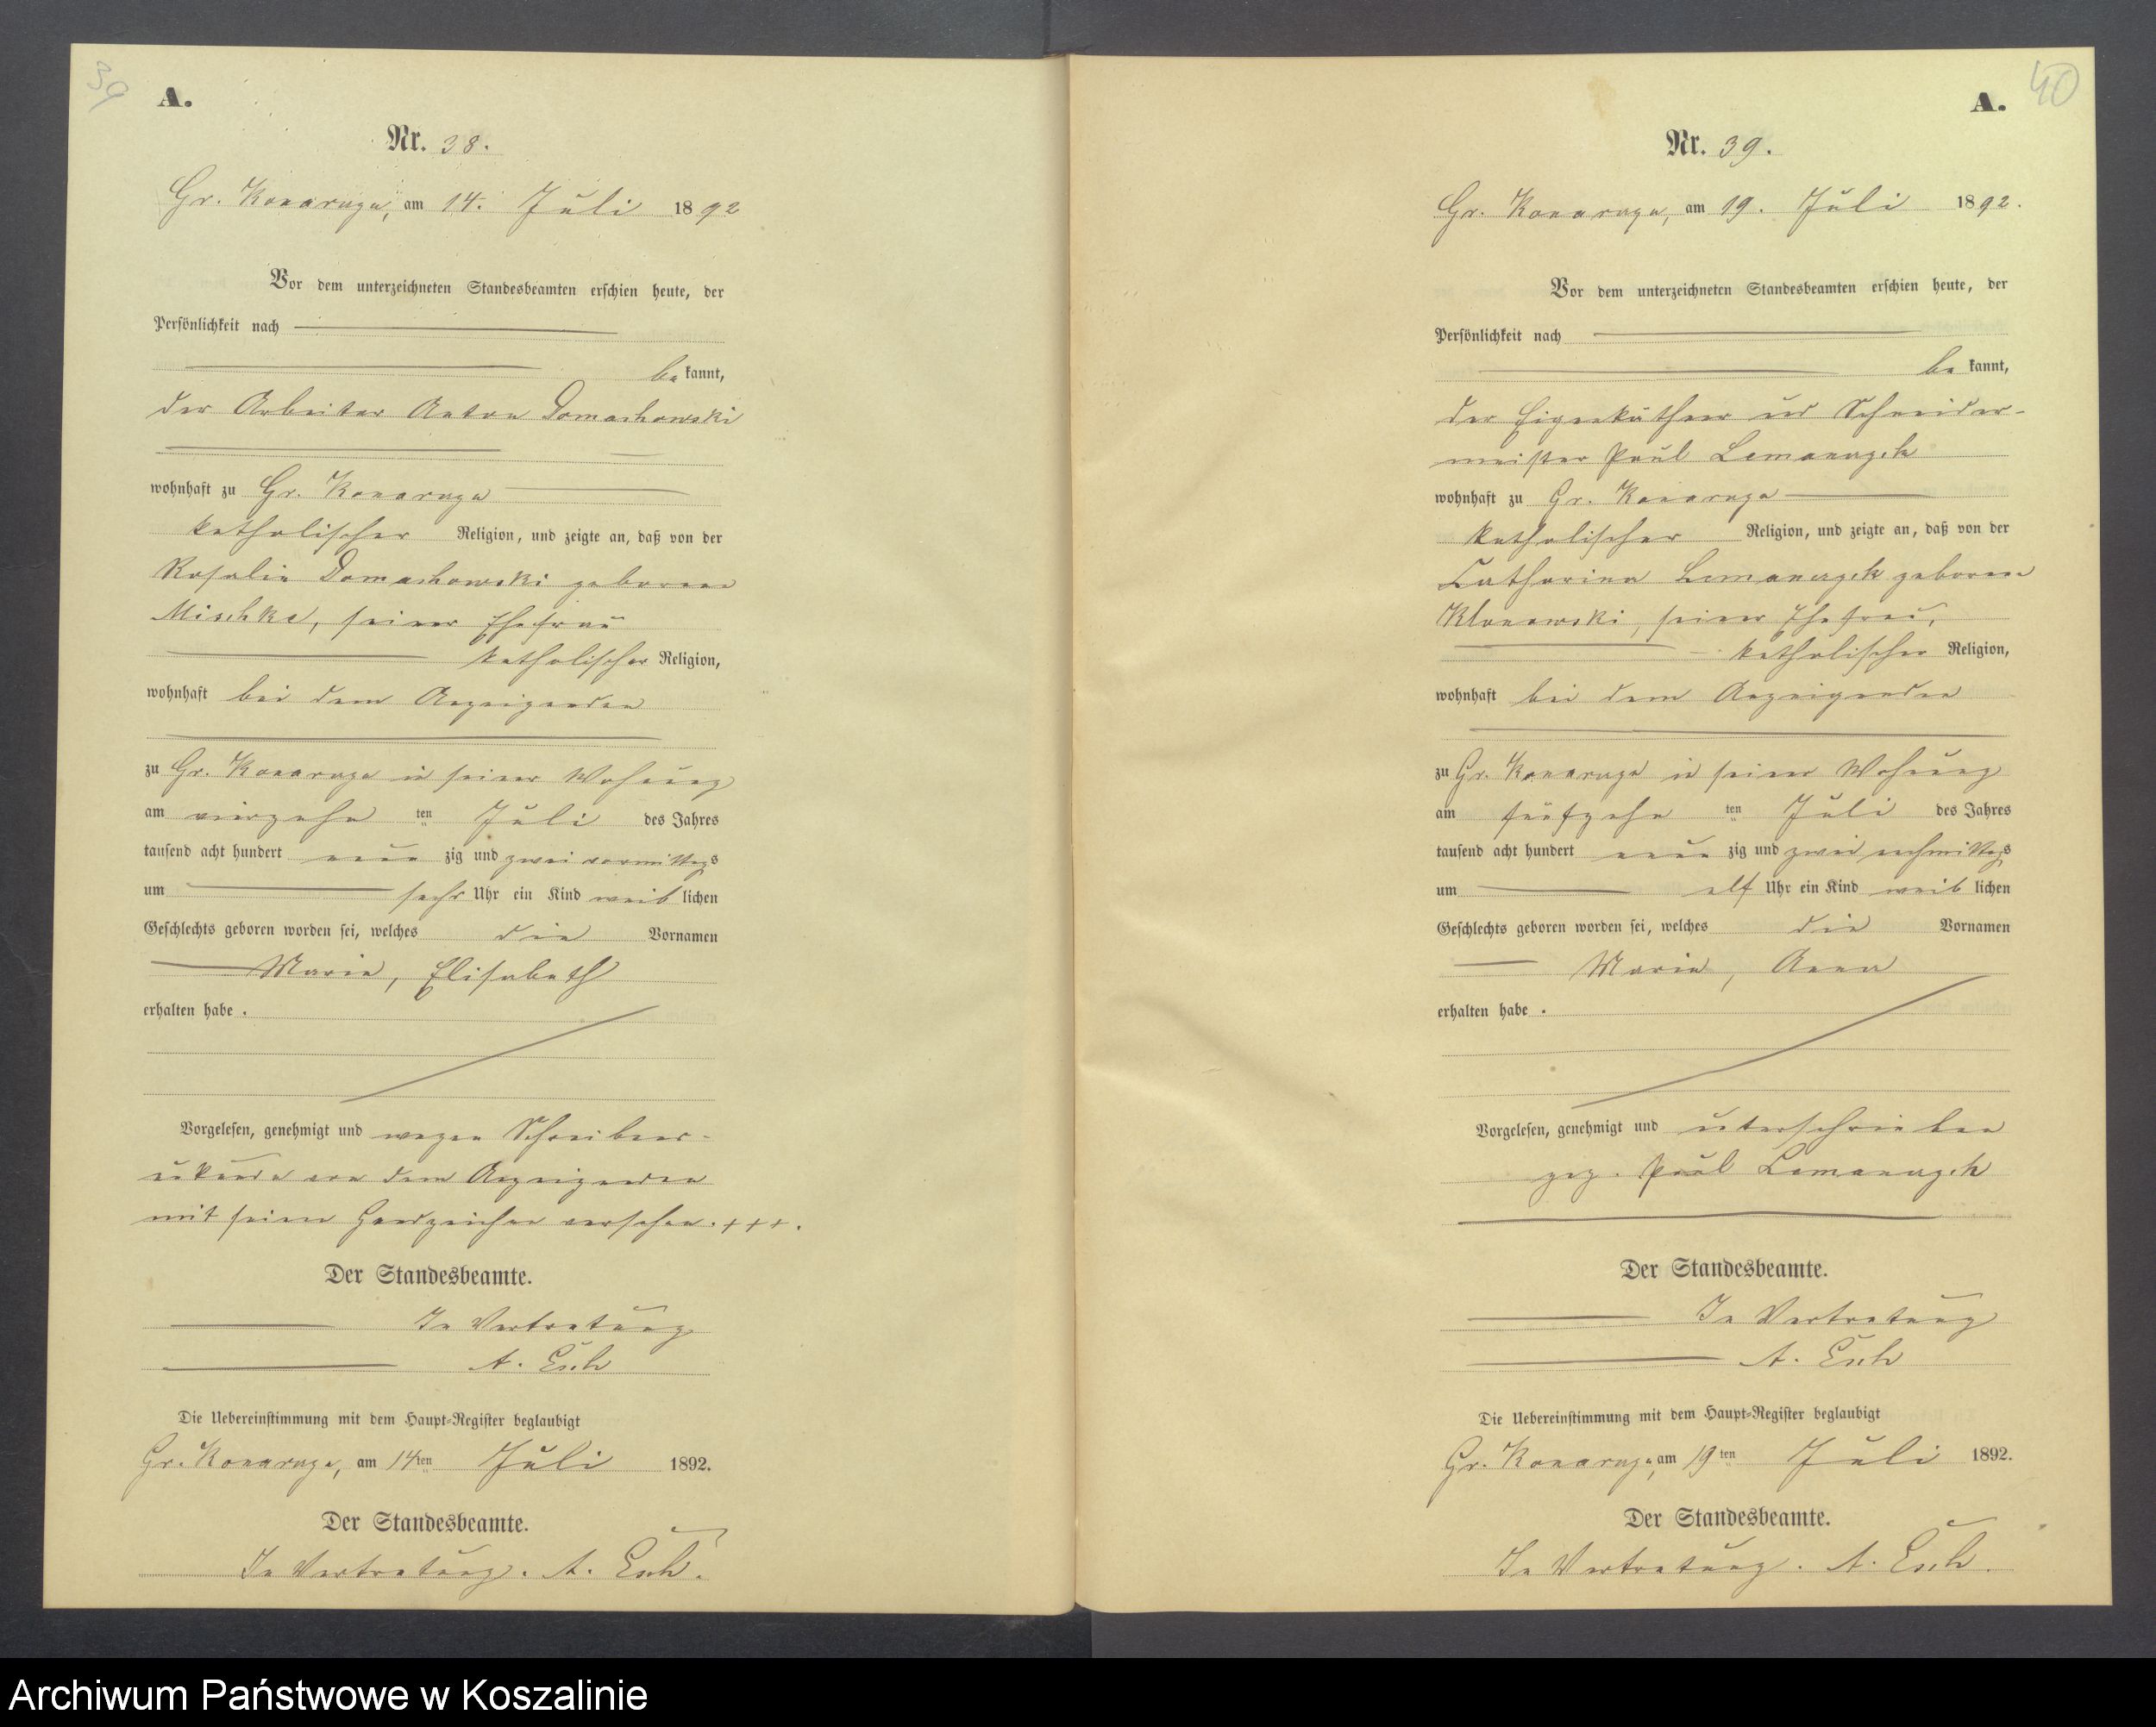 39
A.
Nr. 38.
Gr. Konarzyn, am 14. Juli 1892
Vor dem unterzeichneten Standesbeamten erschien heute, der
Persönlichkeit nach
bekannt,
der Arbeiter Anton Domachowski
wohnhaft zu Gr. Konarzyn
katholischer Religion, und zeigte an, daß von der
Rosalie Domachowski geborene
Mischke, seiner Ehefrau
katholischer Religion,
wohnhaft bei dem Anzeigenden
zu Gr. Konarzyn in seiner Wohnung
am vierzehn ten Juli des Jahres
tausend acht hundert neun zig und zwei vormittags
um sechs Uhr ein Kind weiblichen
Geschlechts geboren worden sei, welches die Vornamen
Maria, Elisabeth
erhalten habe.
Vorgelesen, genehmigt und wegen Schreibens-
unkunde von dem Anzeigenden
mit seinem Handzeichen versehen. +++.
Der Standesbeamte.
In Vertretung
A. Esch
Die Uebereinstimmung mit dem Haupt-Register beglaubigt
Gr. Konarzyn, am 14ten Juli 1892.
Der Standesbeamte.
In Vertretung. A. Esch.
40
A.
Nr. 39.
Gr. Konarzyn, am 19. Juli 1892.
Vor dem unterzeichneten Standesbeamten erschien heute, der
Persönlichkeit nach
bekannt,
der Eigenkäthner und Schneider-
meister Paul Lemanczyk
wohnhaft zu Gr. Konarzyn
katholischer Religion, und zeigte an, daß von der
Catharina Lemanczyk geborene
Klonowski, seiner Ehefrau,
katholischer Religion,
wohnhaft bei dem Anzeigenden
zu Gr. Konarzyn in seiner Wohnung
am fünfzehn ten Juli des Jahres
tausend acht hundert neun zig und zwei nachmittags
um elf Uhr ein Kind weiblichen
Geschlechts geboren worden sei, welches die Vornamen
Maria, Anna
erhalten habe.
Vorgelesen, genehmigt und unterschrieben
gez. Paul Lemanczyk
Der Standesbeamte.
In Vertretung
A. Esch
Die Uebereinstimmung mit dem Haupt-Register beglaubigt
Gr. Konarzyn, am 19ten Juli 1892.
Der Standesbeamte.
In Vertretung. A. Esch.
Archiwum Państwowe w Koszalinie